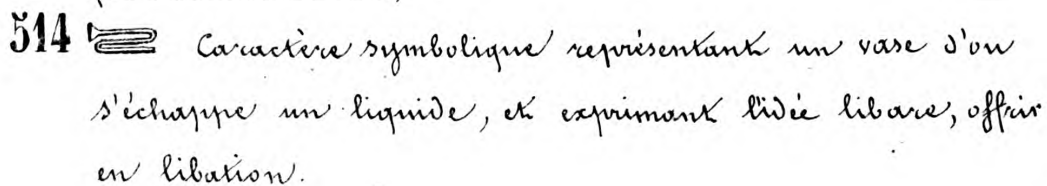 514 Caractère symbolique représentant un vase d'ou
s'échappe un liquide, et exprimant l'idée libare, offrir
en libation.